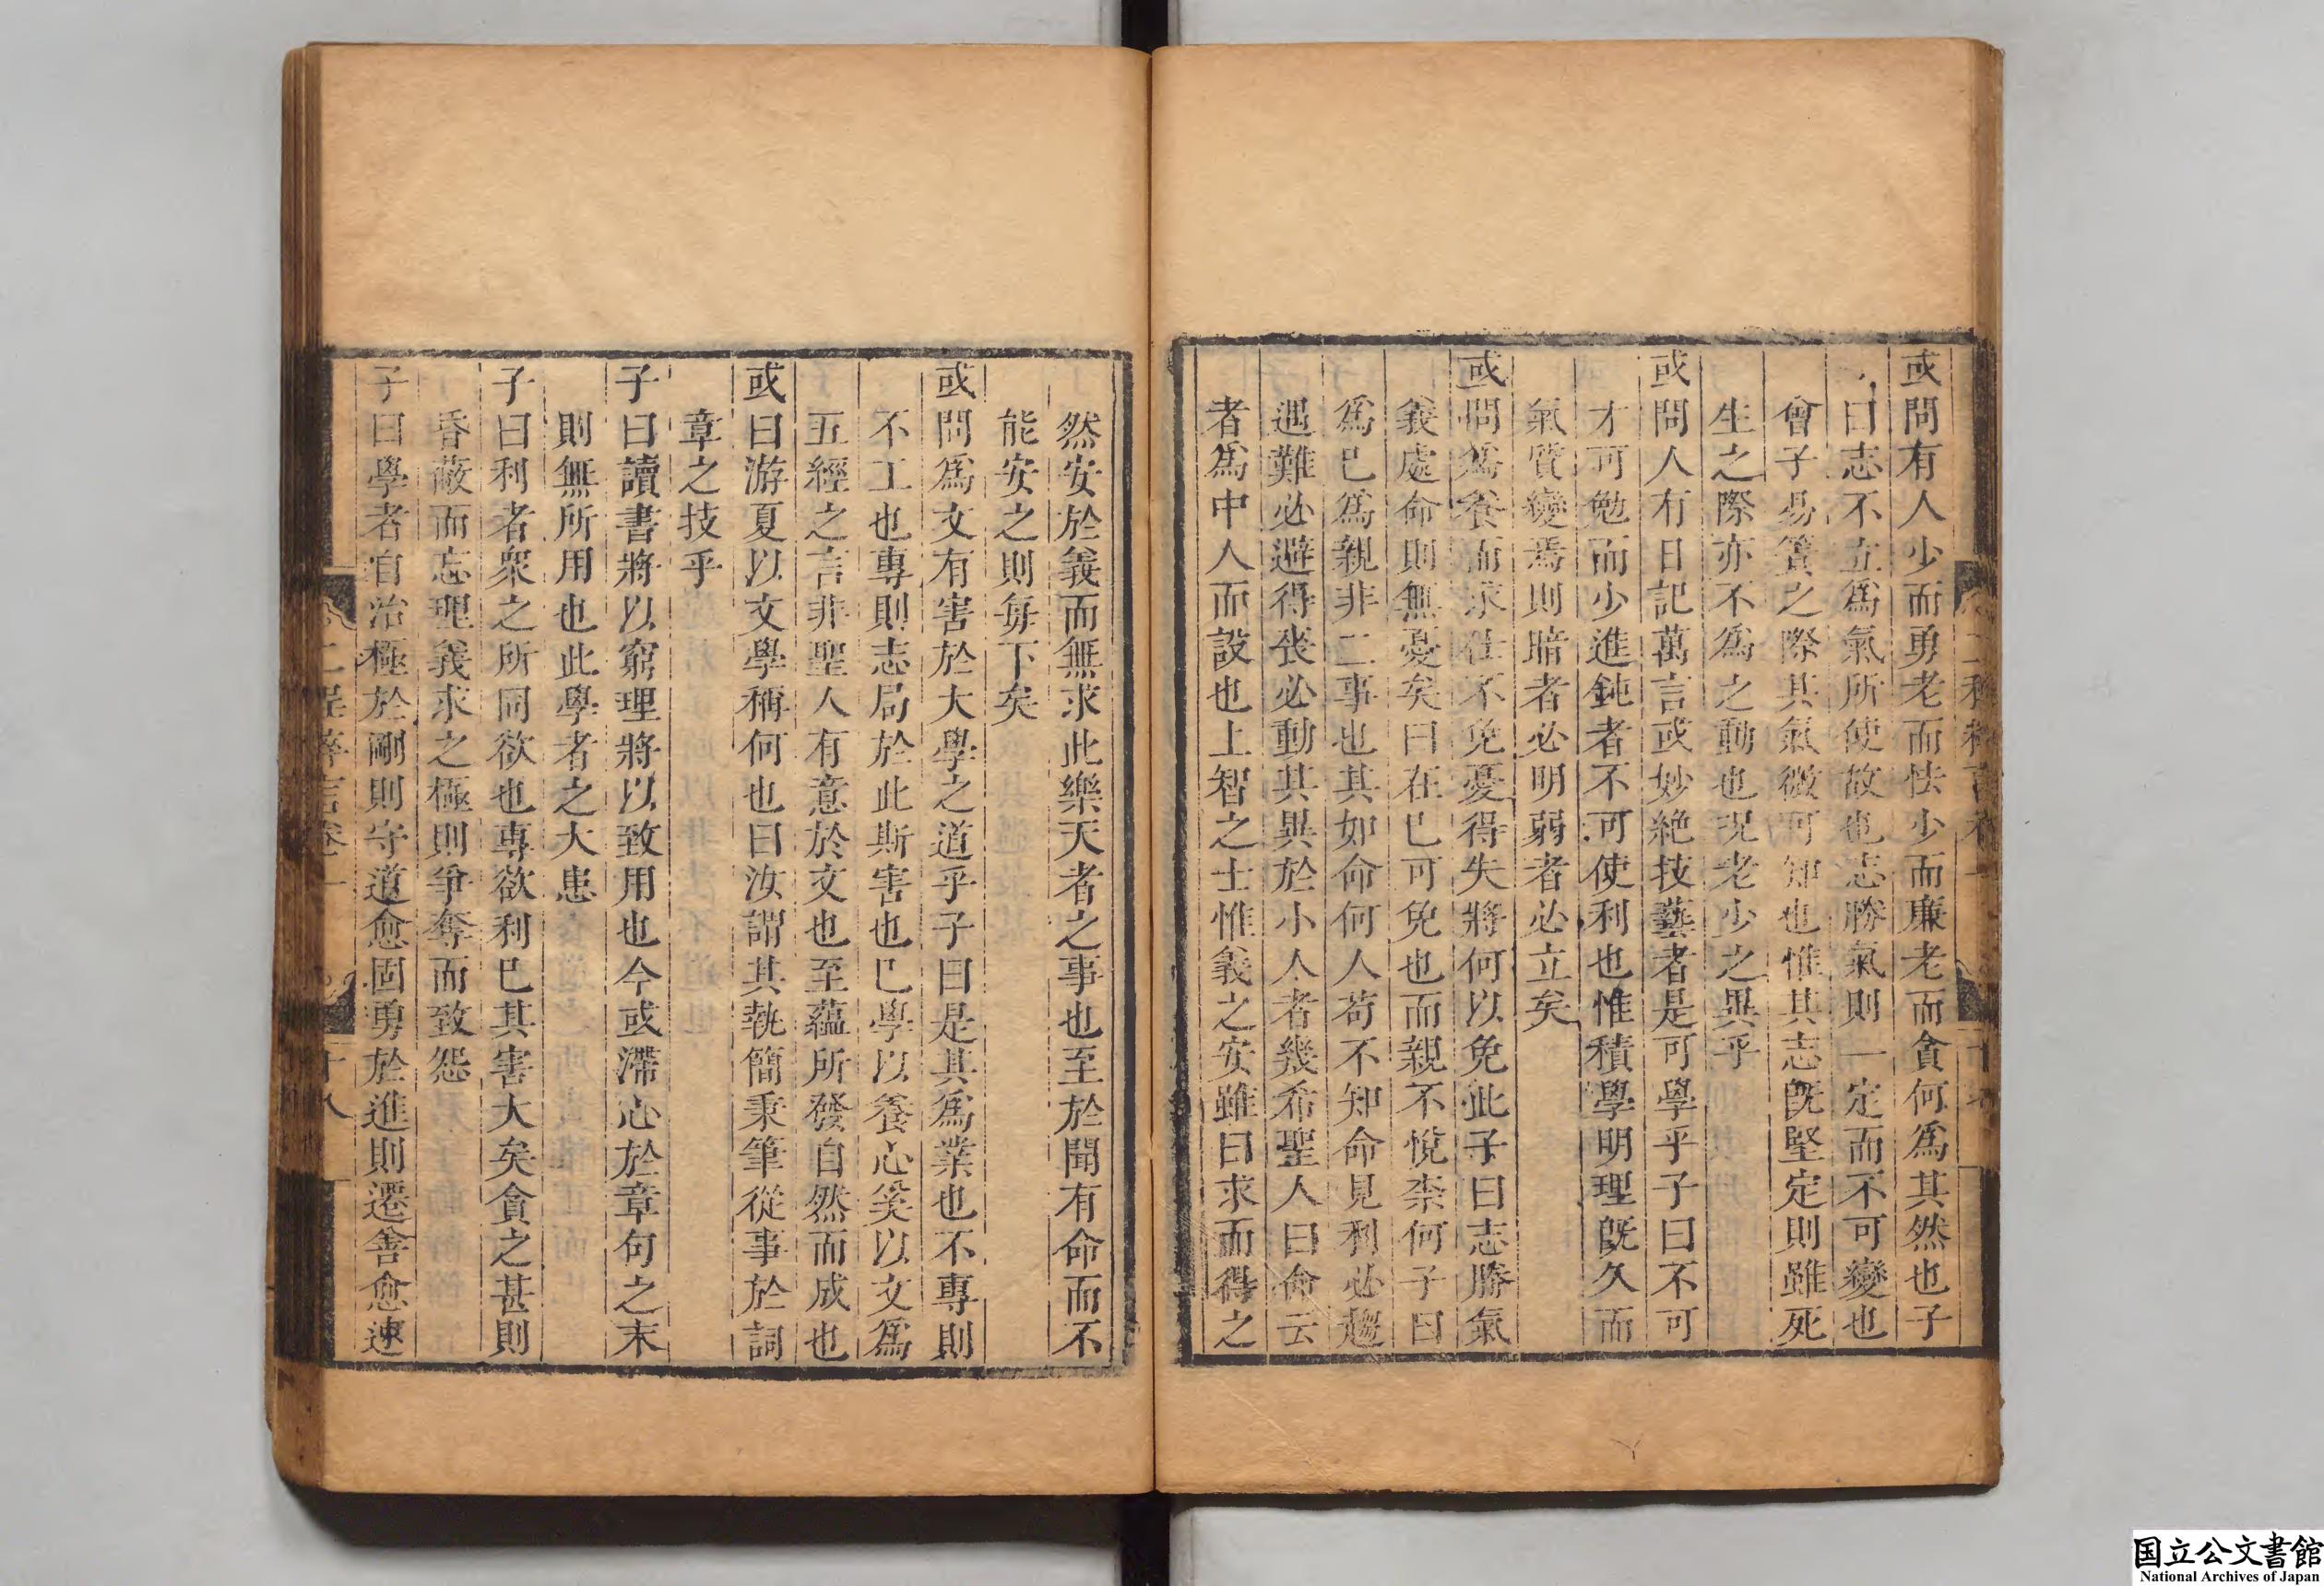 或問有人少而勇老而怯少而廉老而貪何爲其然也子
曰志不立爲氣所使故也志勝氣則一定而不可變也
曾子易簀之際其氣微可知也惟其志旣堅定則雖死
生之際亦不爲之動也况老少之異乎
或問人有日記萬言或妙絶技藝者是可學乎子曰不可
才可勉而少進鈍者不可使利也惟積學明理旣久而
氣質變焉則暗者必明弱者必立矣
或問爲養而求仕不免憂得失將何以免此子曰志勝氣
義處命則無憂矣曰在己可免也而親不悅柰何子曰
爲己爲親非二事也其如命何人苟不知命見利必趨
遇難必避得喪必動其異於小人者幾希聖人曰命云
者爲中人而設也上智之士惟義之安雖曰求而得之
然安於義而無求此樂天者之事也至於聞有命而不
能安之則每下矣
或問爲文有害於大學之道乎子曰是其爲業也不專則
不工也專則志局於此斯害也已學以養心奚以文爲
五經之言非聖人有意於文也至蘊所發自然而成也
或曰游夏以文學稱何也曰汝謂其執簡秉筆從事於詞
章之技乎
子曰讀書將以窮理將以致用也今或滯心於章句之末
則無所用也此學者之大患
子曰利者衆之所同欲也專欲利己其害大矣貪之甚則
昏蔽而忘理義求之極則爭奪而致怨
子曰學者自治極於剛則守道愈固勇於進則遷善愈速
二程粹言卷一
十八
国立公文書館
National Archives of Japan